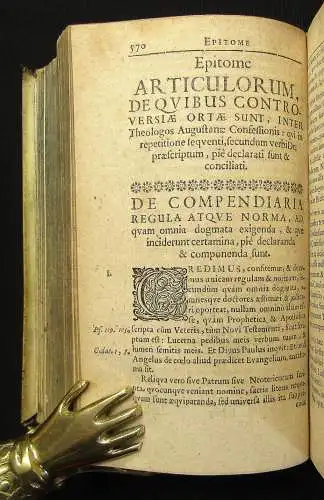 570 EPITOME
Epitome
ARTICULORUM,
DE QVIBUS CONTRO-
VERSIÆ ORTÆ SUNT, INTER
Theologos Augustanæ Confessionis: qui in
repetitione sequenti, secundum verbi Dei
præscriptum, piè declarati sunt &
conciliati.
DE COMPENDIARIA
REGULA ATQVE NORMA, AD
quam omnia dogmata exigenda, & quæ
inciderunt certamina, piè declaranda
& componenda sunt.
I. CREDIMUS, confitemur &
mus unicam regulam & normam,
cundum quam omnia dogmata,
omnesque doctores æstimari & judica-
ri oporteat, nullam omnino aliam es-
se, quàm Prophetica & Apostolica
scripta cùm Veteris, tùm Novi Testamenti,
ptum est: Lucerna pedibus meis verbum tuum, &
lumen semitis meis. Et Divus Paulus inquit: Etiamsi
Galat. 1, 8. Angelus de cœlo aliud prædicet Evangelium,
ma sit.
Reliqva verò sive Patrum sive Neotericorum
pta, qvocunque veniant nomine, sacris literis
quam æqviparanda, sed universa illis ita